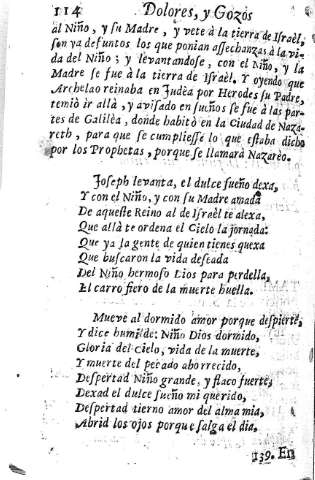 114 Dolores, y Gozos
al Niño, y su Madre, y vete à la tierra de Israèl,
son ya defuntos los que ponian assechanzas à la vi-
da del Niño; y levantandose, con el Niño, y la
Madre se fue à la tierra de Israèl. Y oyendo que
Archelao reinaba en Judèa por Herodes su Padre,
temiò ir allà, y avisado en sueños se fue à las par-
tes de Galilèa, donde habitò en la Ciudad de Naza-
reth, para que se cumpliesse lo que estaba dicho
por los Prophetas, porque se llamarà Nazareo.
Joseph levanta, el dulce sueño dexa,
Y con el Niño, y con su Madre amada
De aqueste Reino al de Israèl te alexa,
Que allà te ordena el Cielo la jornada:
Que ya la gente de quien tienes quexa
Que buscaron la vida deseada
Del Niño hermoso Dios para perdella,
El carro fiero de la muerte huella.
Mueve al dormido amor porque despierte,
Y dice humilde: Niño Dios dormido,
Gloria del Cielo, vida de la muerte,
Y muerte del pecado aborrecido,
Despertad Niño grande, y flaco fuerte,
Dexad el dulce sueño mi querido,
Despertad tierno amor del alma mia,
Abrid los ojos porque salga el dia.
139. En